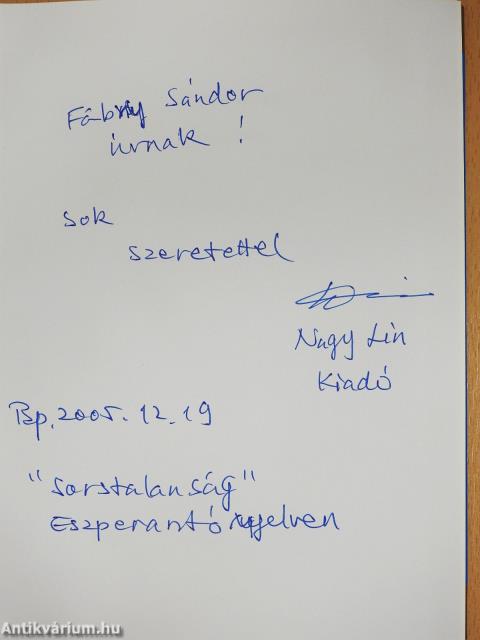 Fábry Sándor
úrnak !
sok
szeretettel
Nagy Lin
Kiadó
Bp. 2005. 12. 19
"Sorstalanság"
Eszperantó nyelven
Antikvárium.hu